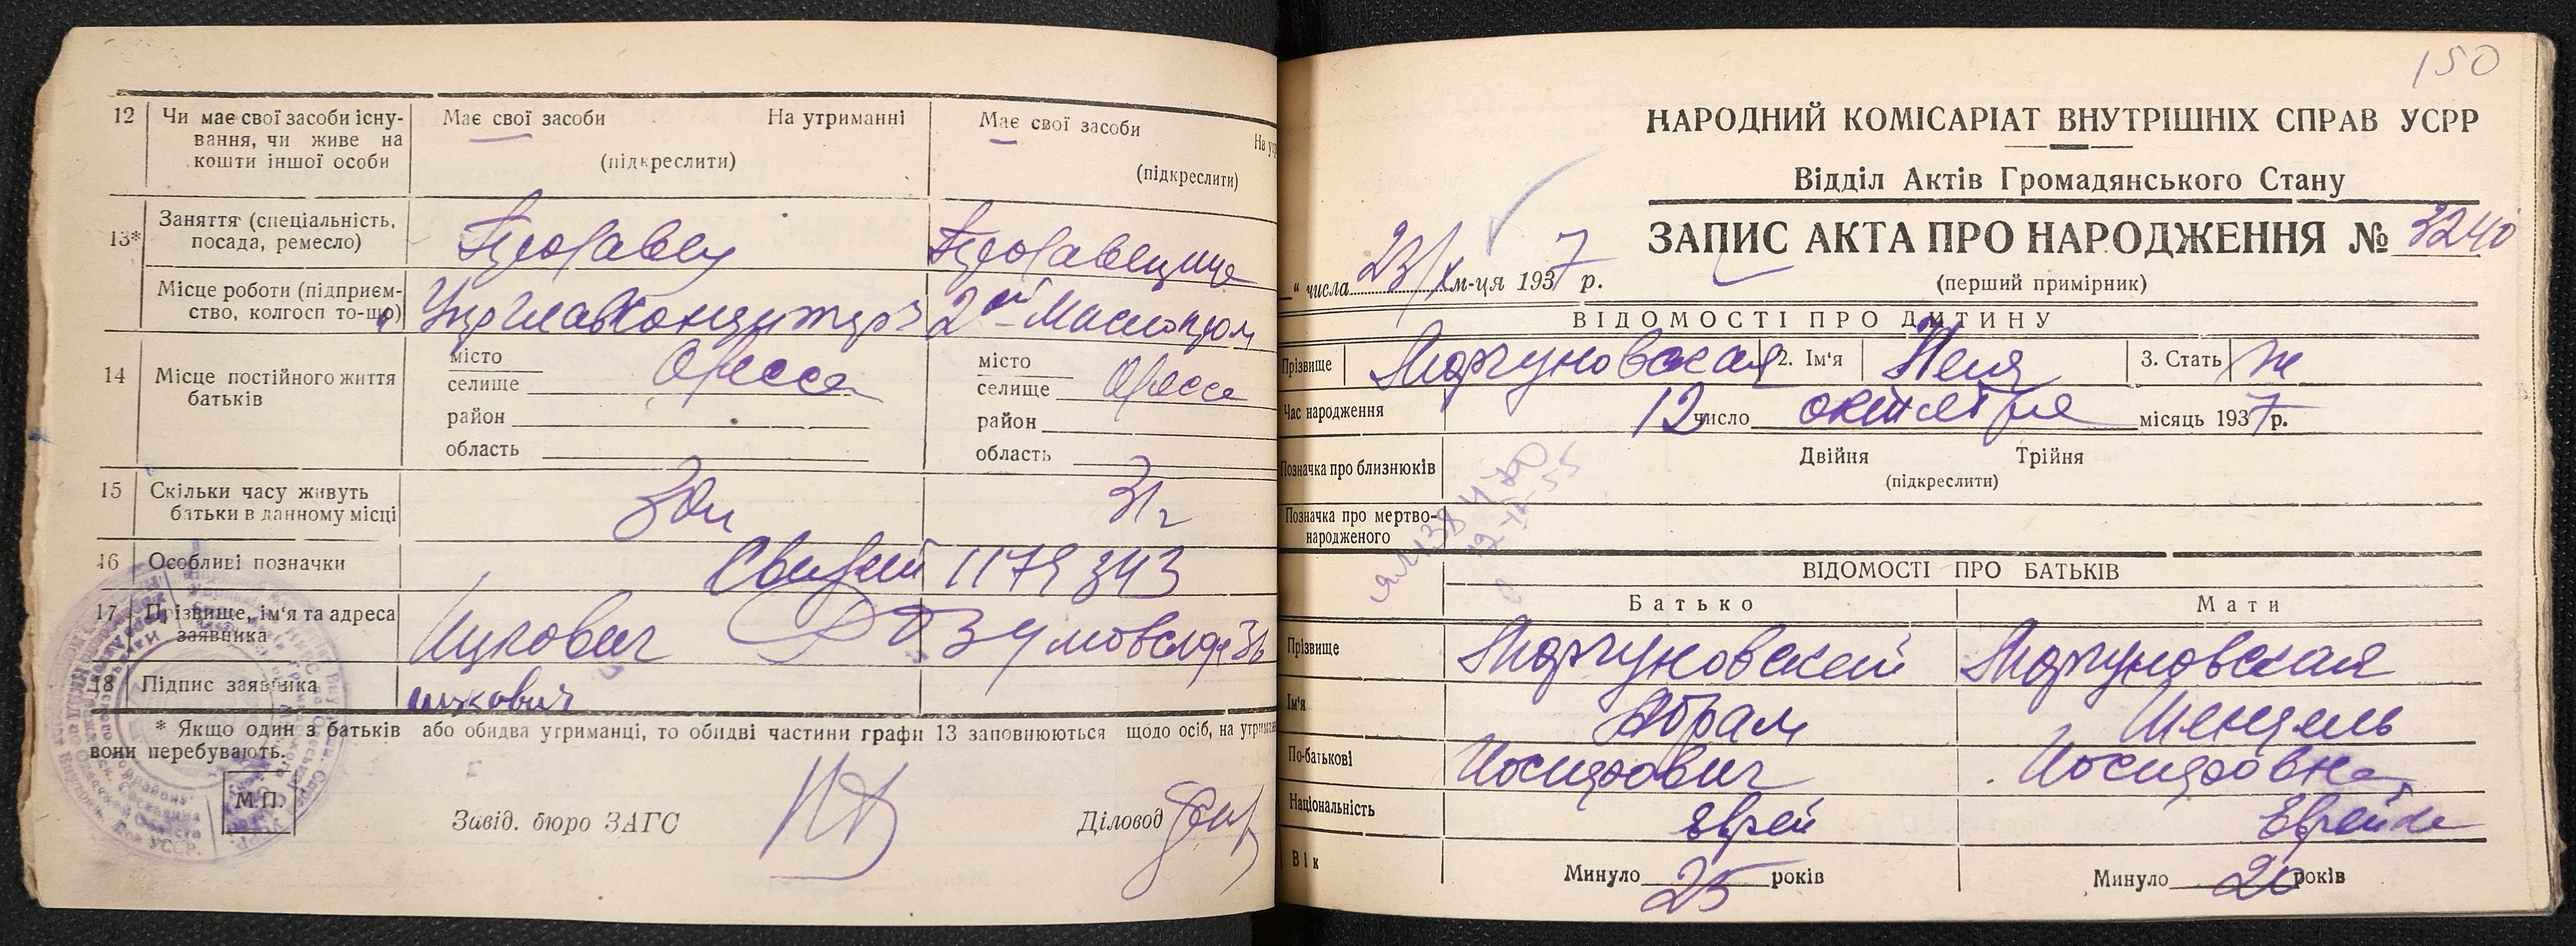 12 Чи має свої засоби існу-
вання, чи живе на
кошти іншої особи
Має свої засоби На утриманні
(підкреслити)
Має свої засоби
(підкреслити)
13* Заняття (спеціальність,
посада, ремесло)
Продавец Продавщица
Місце роботи (підприєм-
ство, колгосп то-що)
Укрглавкондитер 2ой Маслопром
14 Місце постійного життя
батьків
місто
селище Одесса
район
область
місто
селище Одесса
район
область
15 Скільки часу живуть
батьки в данному місці
3 дн 3 г
16 Особливі позначки
1179343
17 Прізвище, ім'я та адреса
заявника
Ицкович
18 Підпис заявника
Ицкович
* Якщо один з батьків або обидва утриманці, то обидві частини графи 13 заповнюються щодо осіб, на
вони перебувають.
М.П.
Завід. бюро ЗАГС
Діловод
150
НАРОДНИЙ КОМІСАРІАТ ВНУТРІШНІХ СПРАВ УСРР
Відділ Актів Громадянського Стану
ЗАПИС АКТА ПРО НАРОДЖЕННЯ № 3240
(перший примірник)
" числа 23/X м-ця 1937 р.
ВІДОМОСТІ ПРО ДИТИНУ
Прізвище Моргуновская 2. Ім'я Неля 3. Стать ж
Час народження 12 число октября місяць 1937 р.
Позначка про близнюків Двійня Трійня
(підкреслити)
Позначка про мертво-
народженого
ВІДОМОСТІ ПРО БАТЬКІВ
Батько Мати
Прізвище Моргуновский Моргуновская
Ім'я Абрам Шендель
По-батькові Иосифович Иосифовна
Національність Еврей Еврейка
Вік Минуло 25 років Минуло 20 років